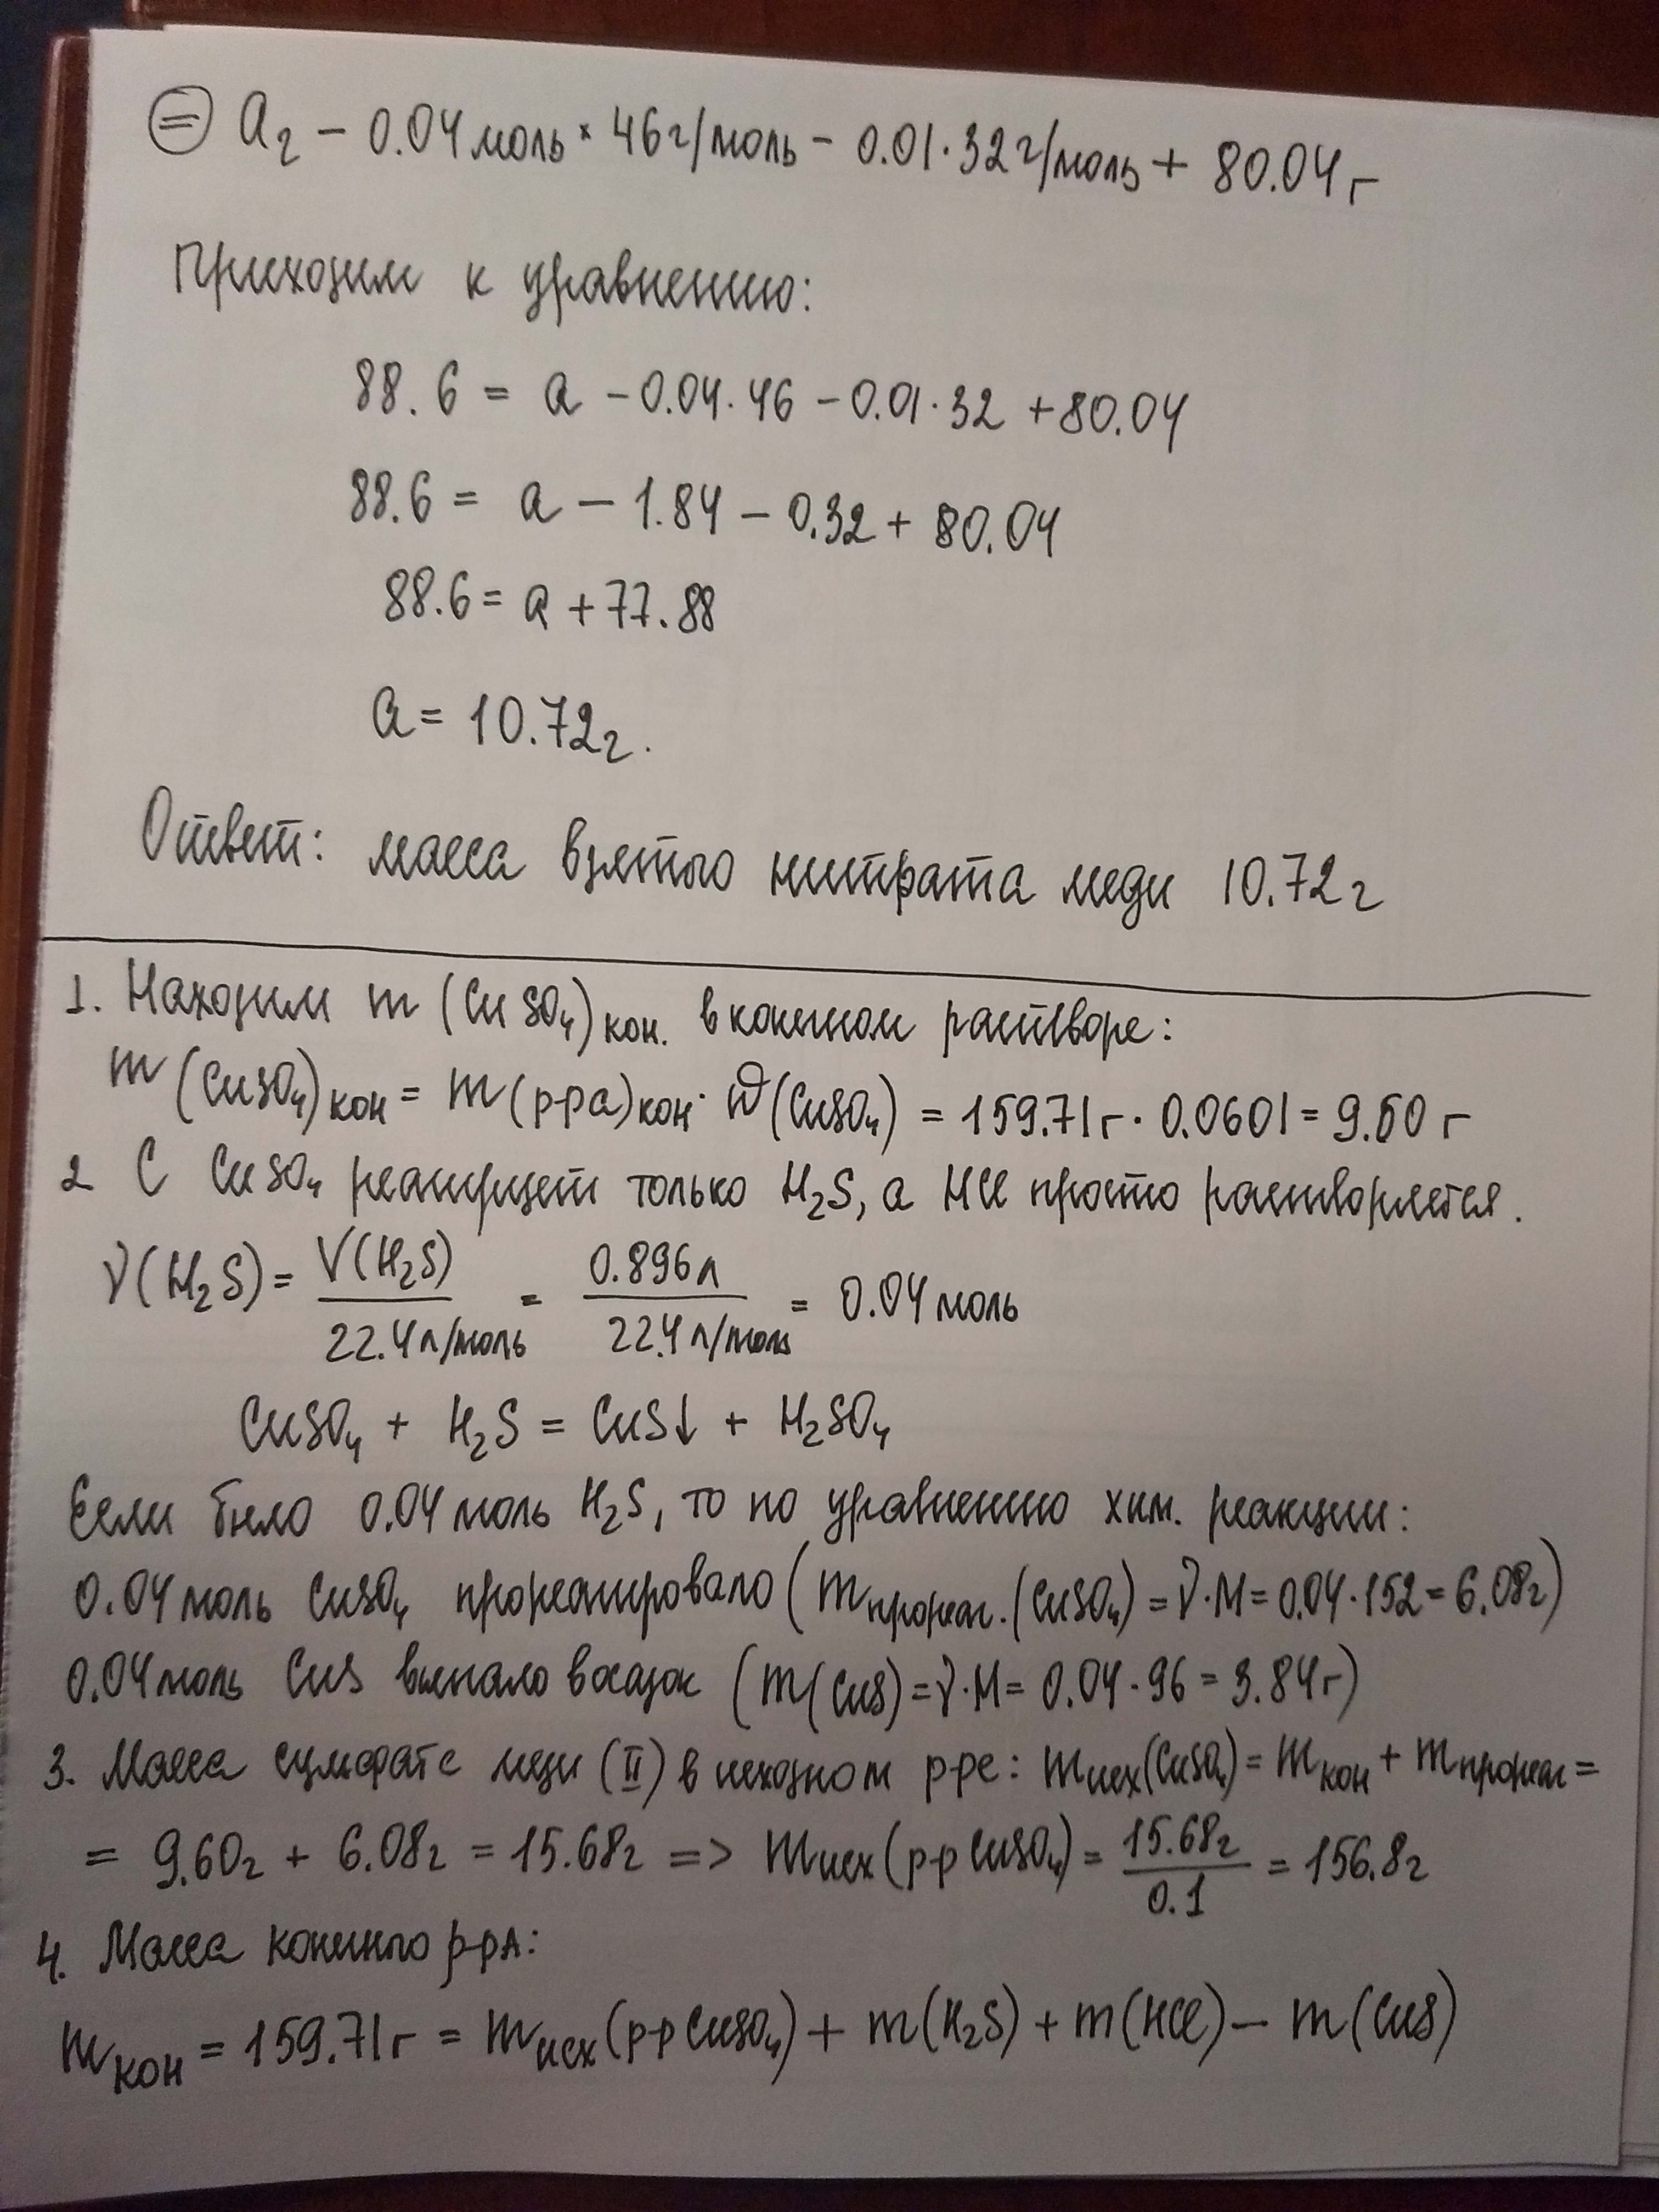 = a г – 0.04 моль × 46 г/моль – 0.01 · 32 г/моль + 80.04 г
Приходим к уравнению:
88.6 = a – 0.04 · 46 – 0.01 · 32 + 80.04
88.6 = a – 1.84 – 0.32 + 80.04
88.6 = a + 77.88
a = 10.72 г.
Ответ: масса взятого нитрата меди 10.72 г
1. Находим m (CuSO₄) кон. в конечном растворе:
m (CuSO₄) кон = m (р-ра) кон · ω (CuSO₄) = 159.71 г · 0.0601 = 9.60 г
2 С CuSO₄ реагирует только H₂S, а HCl просто растворяется.
ν(H₂S) = V(H₂S) / 22.4 л/моль = 0.896 л / 22.4 л/моль = 0.04 моль
CuSO₄ + H₂S = CuS↓ + H₂SO₄
Если было 0.04 моль H₂S, то по уравнению хим. реакции:
0.04 моль CuSO₄ прореагировало (m прореаг. (CuSO₄) = ν · M = 0.04 · 152 = 6.08 г)
0.04 моль CuS выпало в осадок (m(CuS) = ν · M = 0.04 · 96 = 3.84 г)
3. Масса сульфата меди (II) в исходном р-ре: m исх (CuSO₄) = m кон + m прореаг =
= 9.60 г + 6.08 г = 15.68 г => m исх (р-р CuSO₄) = 15.68 г / 0.1 = 156.8 г
4. Масса конечного р-ра:
m кон = 159.71 г = m исх (р-р CuSO₄) + m (H₂S) + m (HCl) – m (CuS)